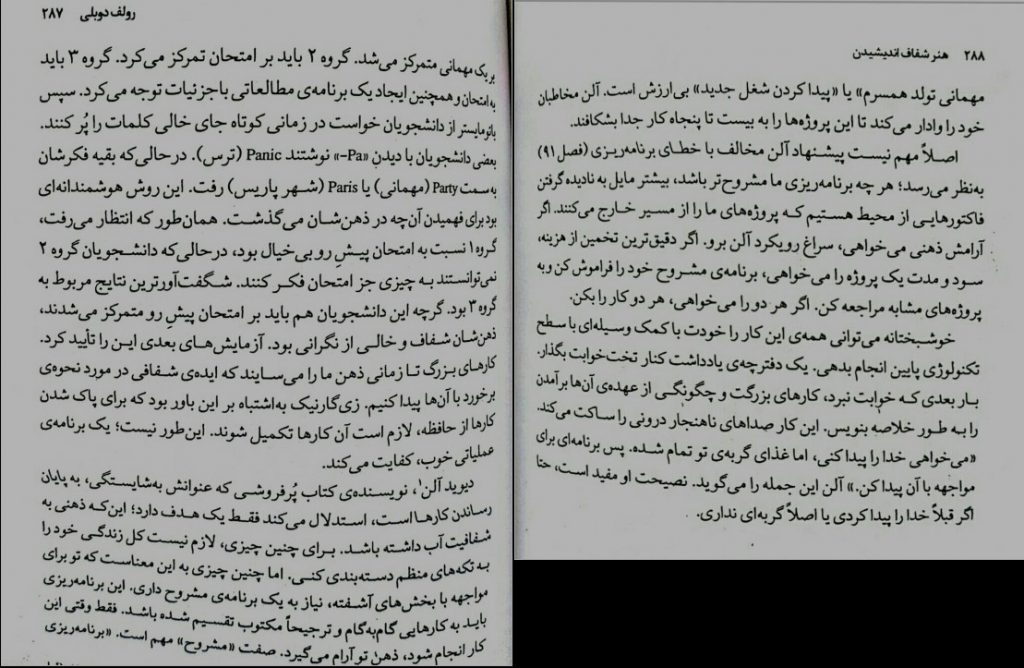 رولف دوبلی ۲۸۷
بر یک مهمانی متمرکز می‌شد. گروه ۲ باید بر امتحان تمرکز می‌کرد. گروه ۳ باید
به امتحان و همچنین ایجاد یک برنامه‌ی مطالعاتی با جزئیات توجه می‌کرد. سپس
بائومایستر از دانشجویان خواست در زمانی کوتاه جای خالی کلمات را پُر کنند.
بعضی دانشجویان با دیدن «Pa–» نوشتند Panic (ترس). درحالی‌که بقیه فکرشان
به سمت Party (مهمانی) یا Paris (شهر پاریس) رفت. این روش هوشمندانه‌ای
بود برای فهمیدن آن‌چه در ذهن‌شان می‌گذشت. همان‌طور که انتظار می‌رفت،
گروه ۱ نسبت به امتحان پیشِ رو بی‌خیال بود، درحالی‌که دانشجویان گروه ۲
نمی‌توانستند به چیزی جز امتحان فکر کنند. شگفت‌آورترین نتایج مربوط به
گروه ۳ بود. گرچه این دانشجویان هم باید بر امتحان پیشِ رو متمرکز می‌شدند،
ذهن‌شان شفاف و خالی از نگرانی بود. آزمایش‌های بعدی این را تأیید کرد.
کارهای بزرگ تا زمانی ذهن ما را می‌سایند که ایده‌ی شفافی در مورد نحوه‌ی
برخورد با آن‌ها پیدا کنیم. زی‌گارنیک به‌اشتباه بر این باور بود که برای پاک شدن
کارها از حافظه، لازم است آن کارها تکمیل شوند. این‌طور نیست؛ یک برنامه‌ی
عملیاتی خوب، کفایت می‌کند.
دیوید آلن۱، نویسنده‌ی کتاب پُرفروشی که عنوانش به‌شایستگی، به پایان
رساندن کارها است، استدلال می‌کند فقط یک هدف دارد؛ این‌که ذهنی به
شفافیت آب داشته باشد. برای چنین چیزی، لازم نیست کل زندگی خود را
به تکه‌های منظم دسته‌بندی کنی. اما چنین چیزی به این معناست که تو برای
مواجهه با بخش‌های آشفته، نیاز به یک برنامه‌ی مشروح داری. این برنامه‌ریزی
باید به کارهایی گام‌به‌گام و ترجیحاً مکتوب تقسیم شده باشد. فقط وقتی این
کار انجام شود، ذهنِ تو آرام می‌گیرد. صفت «مشروح» مهم است. «برنامه‌ریزی
۲۸۸ هنر شفاف اندیشیدن
مهمانی تولد همسرم» یا «پیدا کردن شغل جدید» بی‌ارزش است. آلن مخاطبان
خود را وادار می‌کند تا این پروژه‌ها را به بیست تا پنجاه کار جدا بشکافند.
اصلاً مهم نیست پیشنهاد آلن مخالف با خطای برنامه‌ریزی (فصل ۹۱)
به‌نظر می‌رسد؛ هر چه برنامه‌ریزی ما مشروح‌تر باشد، بیشتر مایل به نادیده گرفتن
فاکتورهایی از محیط هستیم که پروژه‌های ما را از مسیر خارج می‌کنند. اگر
آرامش ذهنی می‌خواهی، سراغ رویکرد آلن برو. اگر دقیق‌ترین تخمین از هزینه،
سود و مدت یک پروژه را می‌خواهی، برنامه‌ی مشروح خود را فراموش کن و به
پروژه‌های مشابه مراجعه کن. اگر هر دو را می‌خواهی، هر دو کار را بکن.
خوشبختانه می‌توانی همه‌ی این کار را خودت با کمک وسیله‌ای با سطح
تکنولوژی پایین انجام بدهی. یک دفترچه‌ی یادداشت کنار تخت‌خوابت بگذار.
بار بعدی که خوابت نبرد، کارهای بزرگت و چگونگی از عهده‌ی آن‌ها برآمدن
را به طور خلاصه بنویس. این کار صداهای ناهنجار درونی را ساکت می‌کند.
«می‌خواهی خدا را پیدا کنی، اما غذای گربه‌ی تو تمام شده. پس برنامه‌ای برای
مواجهه با آن پیدا کن.» آلن این جمله را می‌گوید. نصیحت او مفید است، حتا
اگر قبلاً خدا را پیدا کردی یا اصلاً گربه‌ای نداری.